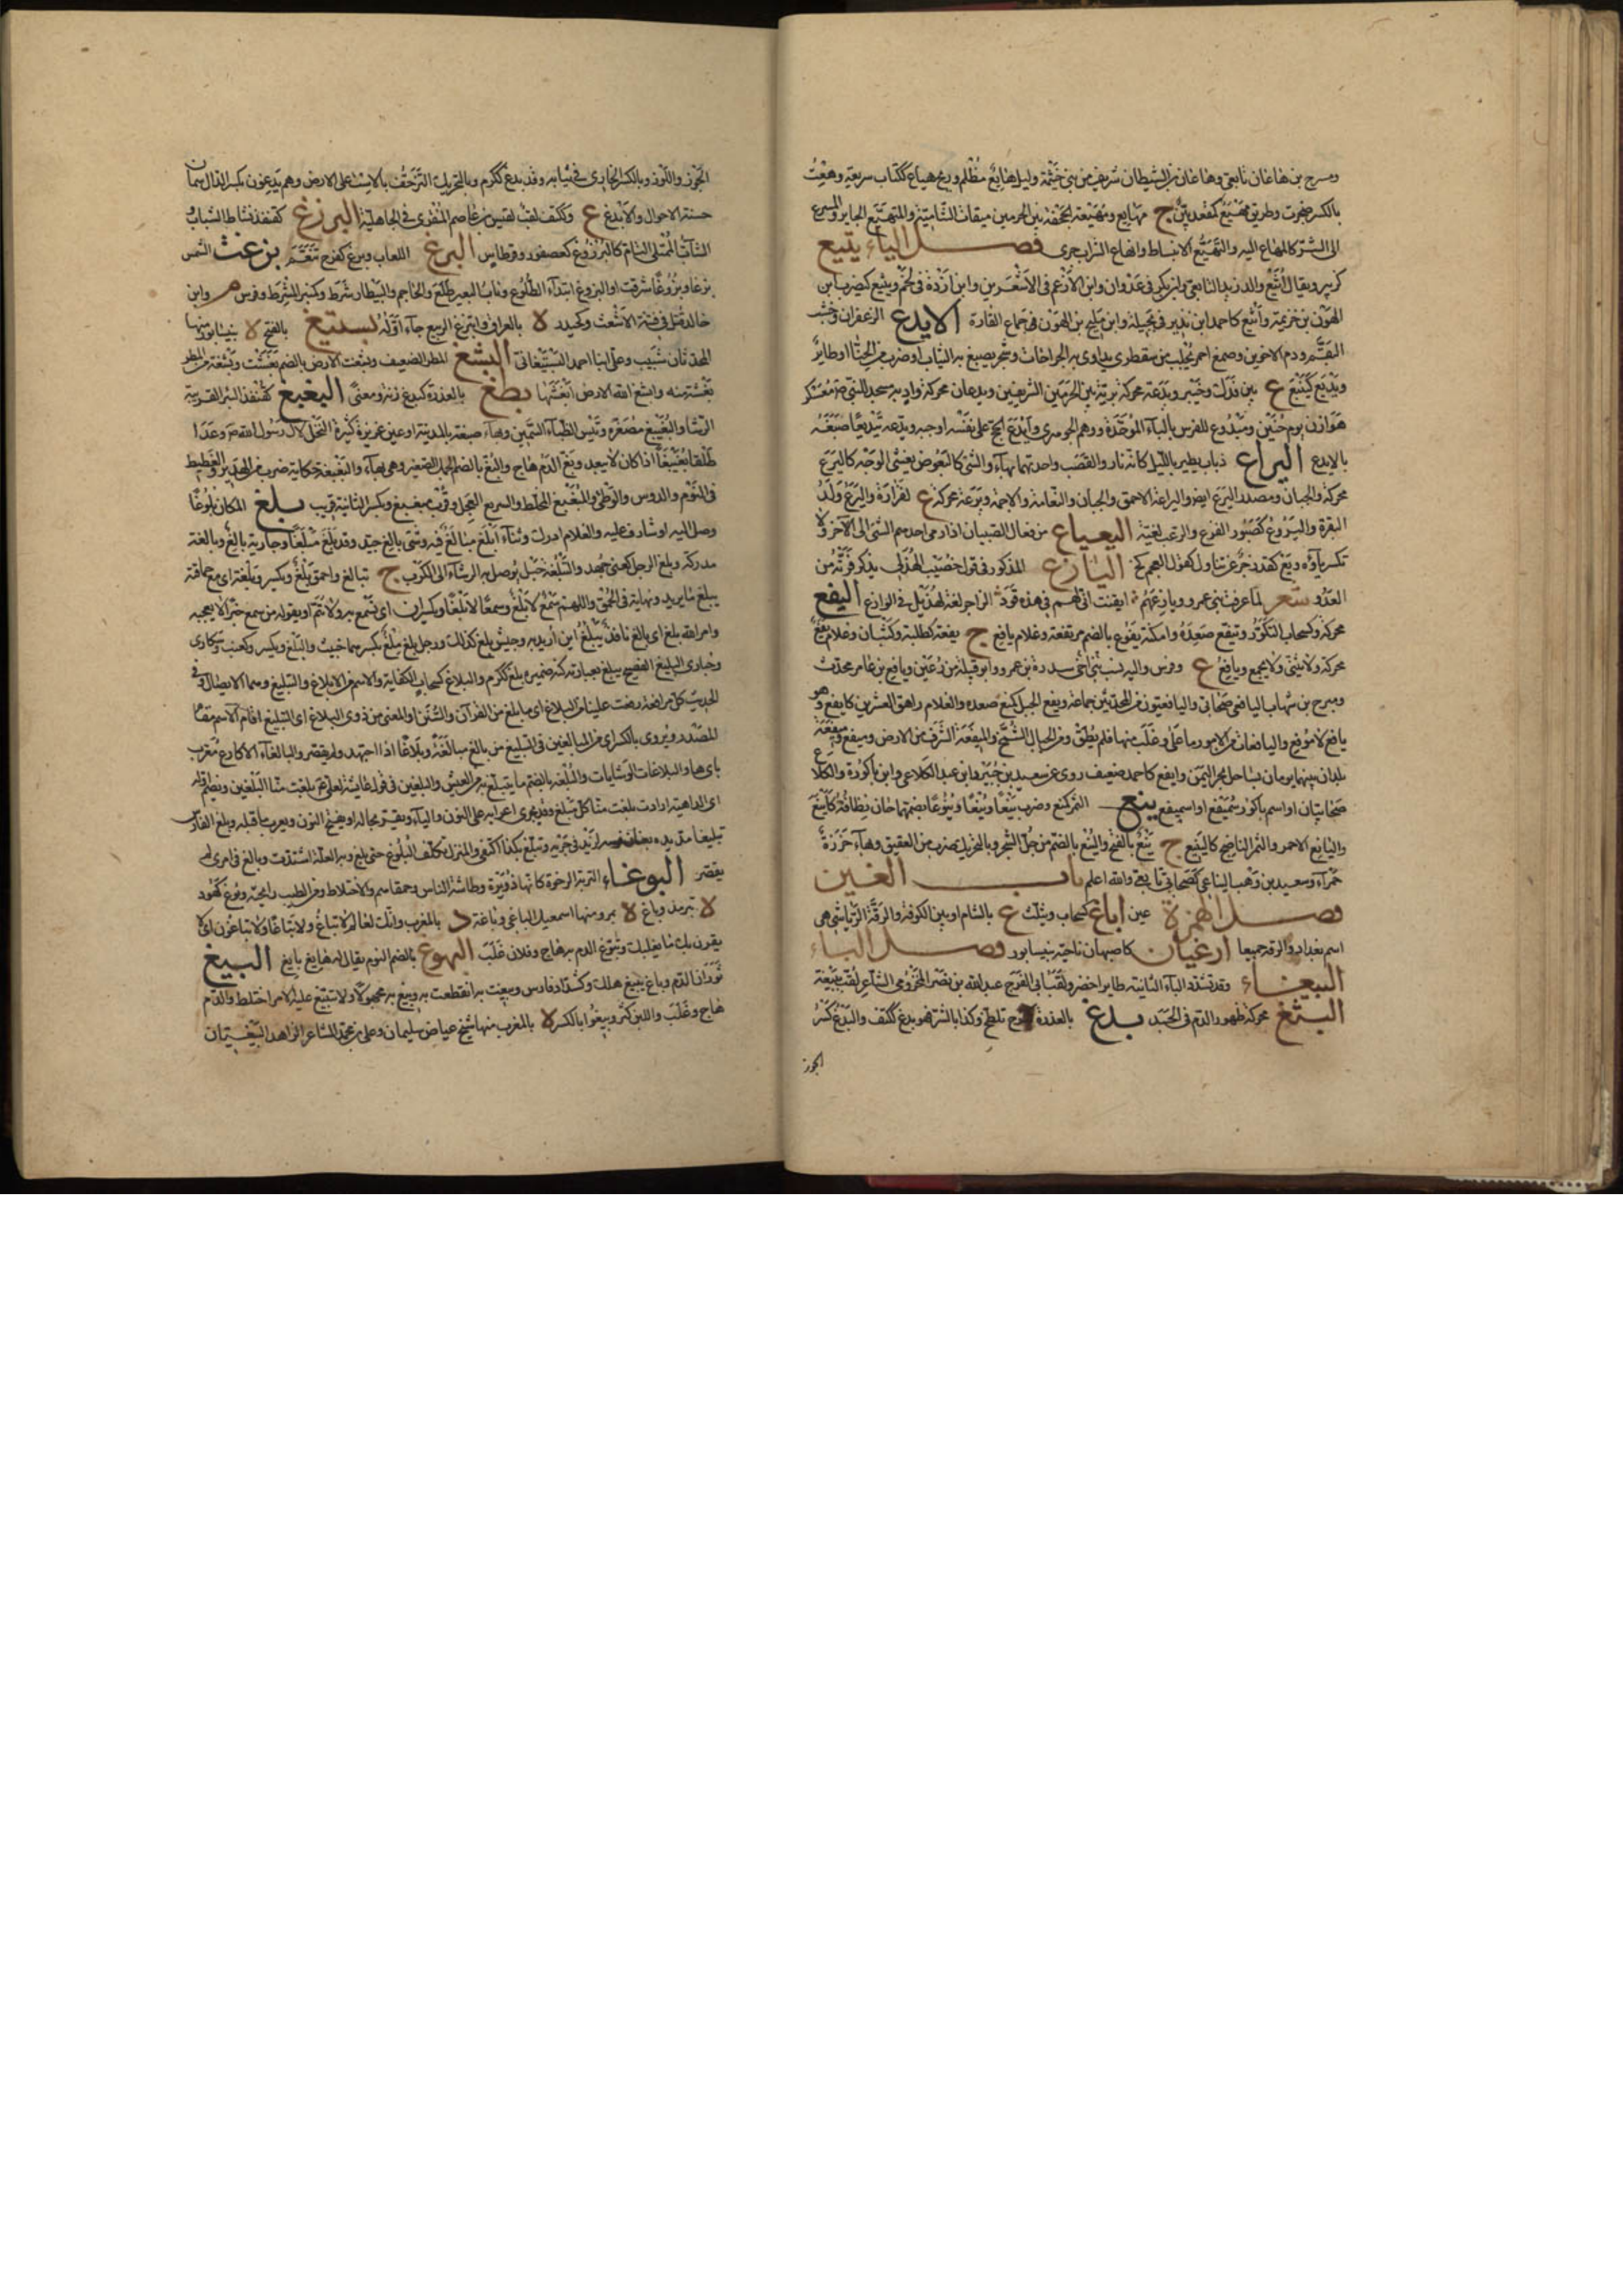 ومسرح بن هاعان تابعي وهاعان من الشيطان شريف من بني خيثمة وليل هايع مظلم وريح هياع ككتاب سريعة وهعت
بالكسر ضجرت وطريق مهيع كمقعد بين ج مهايع ومهيعة الجحفة بين الحرمين ميقات الشامية والمتهيع الجاير والمسرع
الى الشر كالمهاع اليه والتهيع الانبساط وانهاع السراب جرى فصل الياء يتيع
كزبير ويقال أثيع والد زيد التابعي
الهون بن خزيمة وأيثع كاحمد ابن نذير في بجيلة وابن مليح بن الهون في جماع القارة الايدع الزعفران وخشب
البقم ودم الاخوين وصمغ احمر يجلب من سقطرى يداوى به الجراحات وشجر يصبغ به الثياب او ضرب من الحناء او طاير
ويديع كيتبع ع بين فدك وخيبر ويدعة محركة برية بين الحرمين الشريفين ويدعان محركة واد به مسجد للنبي صم ومعسكر
هوازن يوم حنين وميدوع للفرس بالباء الموحدة ووهم الجوهري وأيدع الحج على نفسه اوجبه ويدعه تيديعا صبغه
بالايدع اليراع ذباب يطير بالليل كانه نار والقصب واحدتهما بهاء والشئ كالبعوض يغشى الوجه كاليرع
محركة والجبان ومصدر اليرع ايضا واليراعة الاحمق والجبان والنعامة والاجمة ويرعة محركة ع لفزارة واليرع ولد
البقرة واليروع كصبور الفزع والرعب لغية اليعياع من فعال الصبيان اذا رمى احدهم الشئ الى الآخر ولا
تكسر ياؤه ويع كقد زجر عن تناول كقول العجم كخ اليازع المذكور في قول خصيب الهذلي يذكر فرته من
العدو شعر لما عرفت بني عمرو ويازعهم ايقنت انى لهم في هذه قود الزاجر لغة لهذيل في الوازع اليفع
محركة وكسحاب التل وتيفع صعده وامكنة يفوع بالضم مرتفعة وغلام يافع ج يفعة كطلبة وكثبان وغلام يفع
محركة ولا يثنى ولا يجمع ويافع ع وفرس والبة نسبت
ومبرح بن شهاب اليافعي صحابي واليافعيون من المحدثين جماعة ويفع الجبل كمنع صعده والغلام راهق العشرين كايفع وهو
يافع لا موفع واليافعات من الامور ما علا وغلب منها فلم يطق ومن الجبال الشمخ والميفعة الشرف من الارض وميفع وميفعة
بلدان بينهما يومان بساحل بحر اليمن وايفع كاحمد ضعيف روى عن سعيد بن جبير وابن عبد الكلاعي وابن ناكورة والكلاع
صحابيان او اسم ناكور سميفع او اسميفع ينع الثمر كمنع وضرب ينعا وينعا وينوعا بضمهما حان قطافه كاينع
واليانع الاحمر والثمر الناضج كالينيع ج ينع بالفتح والينع بالضم من جل الشجر وبالتحريك ضرب من العقيق وبهاء خرزة
حمراء وسعيد بن وهب اليناعي كصحابي تابعي والله اعلم باب الغين
فصل الهمزة عين اباغ كسحاب ويثلث ع بالشام او بين الكوفة والرقة
اسم بغداد والرقة جميعا ارغيان كاصبهان ناحية بنيسابور فصل الباء
الببغاء وقد تشدد الباء الثانية طاير اخضر ولقب ابي الفرج عبد الله بن نصر المخزومي الشاعر لقب ببغة
البثغ محركة ظهور الدم في الجسد بدغ بالعذرة كفرح تلطخ وكذا بالشر فهو بدغ ككتف والبدغ كسر
الجوز
الجوز واللوز وبالكسر الخارئ في ثيابه وقد بدغ ككرم وبالتحريك التزحف بالاست على الارض وهم بدغون بكسر الدال سمان
حسنة الاحوال والابدغ ع وككتف لقب لقيس بن عاصم المنقري في الجاهلية البرزغ كقنفذ نشاط الشباب و
الشاب الممتلئ التام كالبرزوغ كعصفور وقرطاس البرغ اللعاب وبرغ كفرح تنعم بزغت الشمس
بزغا وبزوغا شرقت او البزوغ ابتداء الطلوع وناب البعير طلع والحاجم والبيطار شرط وكمنبر المشرط وفرس م وابن
خالد قتل في فتنة الاشعث وكحيدر لا بالعراق وابتزغ الربيع جاء اوله بستيغ بالفتح لا بنيسابور منها
المحدثان شبيب وعلي ابنا احمد البستيغاني البشغ المطر الضعيف وبشغت الارض بالضم بغشت وبشغة من المطر
بغشة منه وابشغ الله الارض ابغشها بطغ بالعذرة كبدغ زنة ومعنى البغبغ كقنفذ البئر القريبة
الرشاء والبغيبغ مصغره وتيس الظباء السمين وبهاء ضيعة بالمدينة او عين غزيرة كثيرة النخل لآل رسول الله صم وعدا
طلقا بغيبغا اذا كان لا يبعد وبغ الدم هاج والبغ بالضم الجمل الصغير وهي بهاء والبغبغة حكاية ضرب من الهدير والغطيط
في النوم والدوس والوطئ والمبغبغ المخلط والسريع العجل وقرب مبغبغ وبكسر الثانية قريب بلغ المكان بلوغا
وصل اليه او شارف عليه والغلام ادرك وثناء ابلغ مبالغ فيه وشئ بالغ جيد وقد بلغ مبلغا وجارية بالغ وبالغة
مدركة وبلغ الرجل كعني جهد والتبلغة حبل يوصل به الرشاء الى الكرب ج تبالغ واحمق بلغ ويكسر وبلغة اى مع حماقته
يبلغ ما يريد ونهاية في الحمق واللهم سمع لا بلغ وسمعا لا بلغا ويكسران اى نسمع به ولا يتم او يقوله من سمع خبرا لا يعجبه
وامر الله بلغ اى بالغ نافذ يبلغ اين اريد به وجيش بلغ كذلك ورجل بلغ ملغ بكسرهما خبيث والبلغ ويكسر وكعنب وسكارى
وحبارى البليغ الفصيح يبلغ بعبارته كنه ضميره بلغ ككرم والبلاغ كسحاب الكفاية والاسم من الابلاغ والتبليغ وهما الايصال وفي
الحديث كل رافعة رفعت علينا من البلاغ اى ما بلغ من القرآن والسنن او المعنى من ذوى البلاغ اى التبليغ اقام الاسم مقام
المصدر ويروى بالكسر اى من المبالغين في التبليغ من بالغ مبالغة وبلاغا اذا اجتهد ولم يقصر والبالغاء الاكارع معرب
بای‌ها والبلاغات الوشايات والبلغة بالضم ما يتبلغ به من العيش والبلغين في قول عايشة لعلي بلغت منا البلغين ويضم اوله
اى الداهية ارادت بلغت منا كل مبلغ وقد يجرى اعرابه على النون والياء يقر بحاله او يفتح النون ويعرب ما قبله وبلغ الفارس
تبليغا مد يده بعنان فرسه ليزيد في جريه وتبلغ بكذا اكتفى والمنزل تكلف البلوغ حتى بلغ وبه العلة اشتدت وبالغ في امرى لم
يقصر البوغاء التربة الرخوة كانها ذريرة وطاشة الناس وحمقاهم والاختلاط ومن الطيب رايحته وبوغ كهود
لا بترمذ وباغ لا بمرو منها اسمعيل الباغي وباغة د بالمغرب وانك لعالم لا تباغ ولا تباغا ولا تباغون اى لا
يقرن بك ما يغلبك وتبوغ الدم به هاج وفلان غلب البهوغ بالضم النوم يقال له هابغ باهغ البيغ
ثوران الدم وباغ يبيغ هلك وكشداد فارس وبيغت به انقطعت به وبيغ به مجهولا ولا تبيغ عليه الامر اختلط والدم
هاج وغلب واللبن كثر وبيغو بالكسر لا بالمغرب منها شيخ عياض سليمان وعلي بن محمد الشاعر الزاهد البيغيان